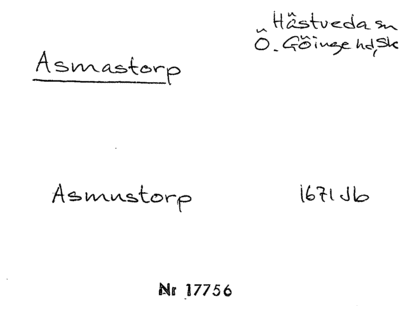 Hästveda sn
Asmastorp
Ö. Göinge hd, Sk
Asmustorp 1671 Jb
Nr 17756